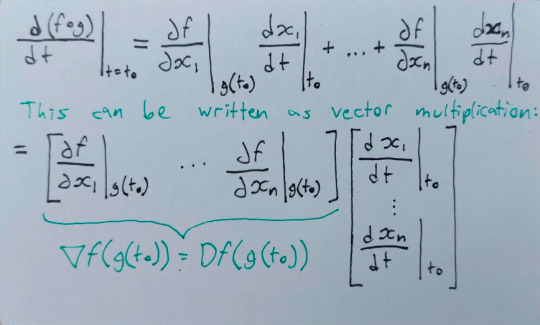 d(f∘g)/dt |t=t₀ = ∂f/∂x₁ |g(t₀) dx₁/dt |t₀ + ... + ∂f/∂xₙ |g(t₀) dxₙ/dt |t₀
This can be written as vector multiplication:
= [ ∂f/∂x₁ |g(t₀) ... ∂f/∂xₙ |g(t₀) ] [ dx₁/dt |t₀ ⋮ dxₙ/dt |t₀ ]
∇f(g(t₀)) = Df(g(t₀))